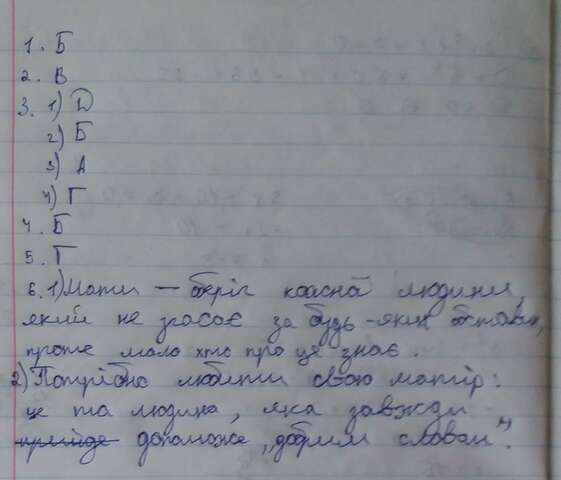 1. Б
2. В
3. 1) Д
2) Б
3) А
4) Г
4. Б
5. Г
6. 1) Мати – оберіг кожної людини,
який не згасає за будь-яких обставин,
проте мало хто про це знає.
2) Потрібно любити свою матір:
це та людина, яка завжди
прийде допоможе „добрим словом".